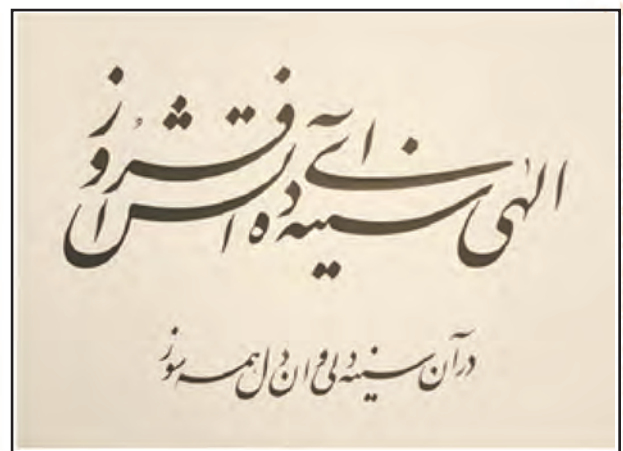 الهی سینه‌ای ده آتش افروز
در آن سینه دلی وان دل همه سوز